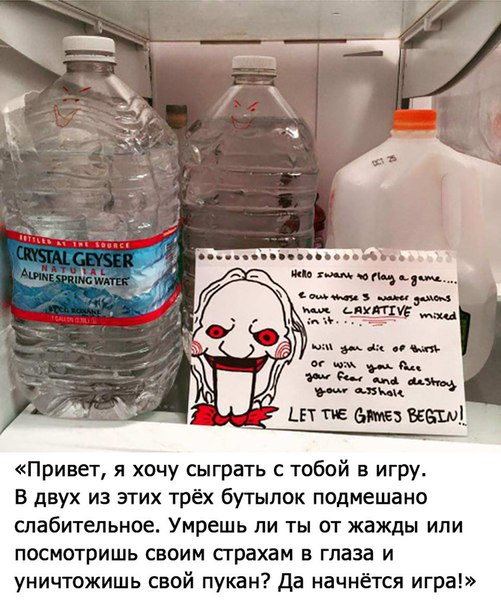 BOTTLED AT THE SOURCE
CRYSTAL GEYSER
NATURAL
ALPINE SPRING WATER
1 GALLON (3.78L)
OCT 25
Hello I want to play a game....
2 out those 3 water gallons
have LAXATIVE mixed
in it....
Will you die of thirst
or will you face
your fear and destroy
your asshole
LET THE GAMES BEGIN!
«Привет, я хочу сыграть с тобой в игру.
В двух из этих трёх бутылок подмешано
слабительное. Умрешь ли ты от жажды или
посмотришь своим страхам в глаза и
уничтожишь свой пукан? Да начнётся игра!»